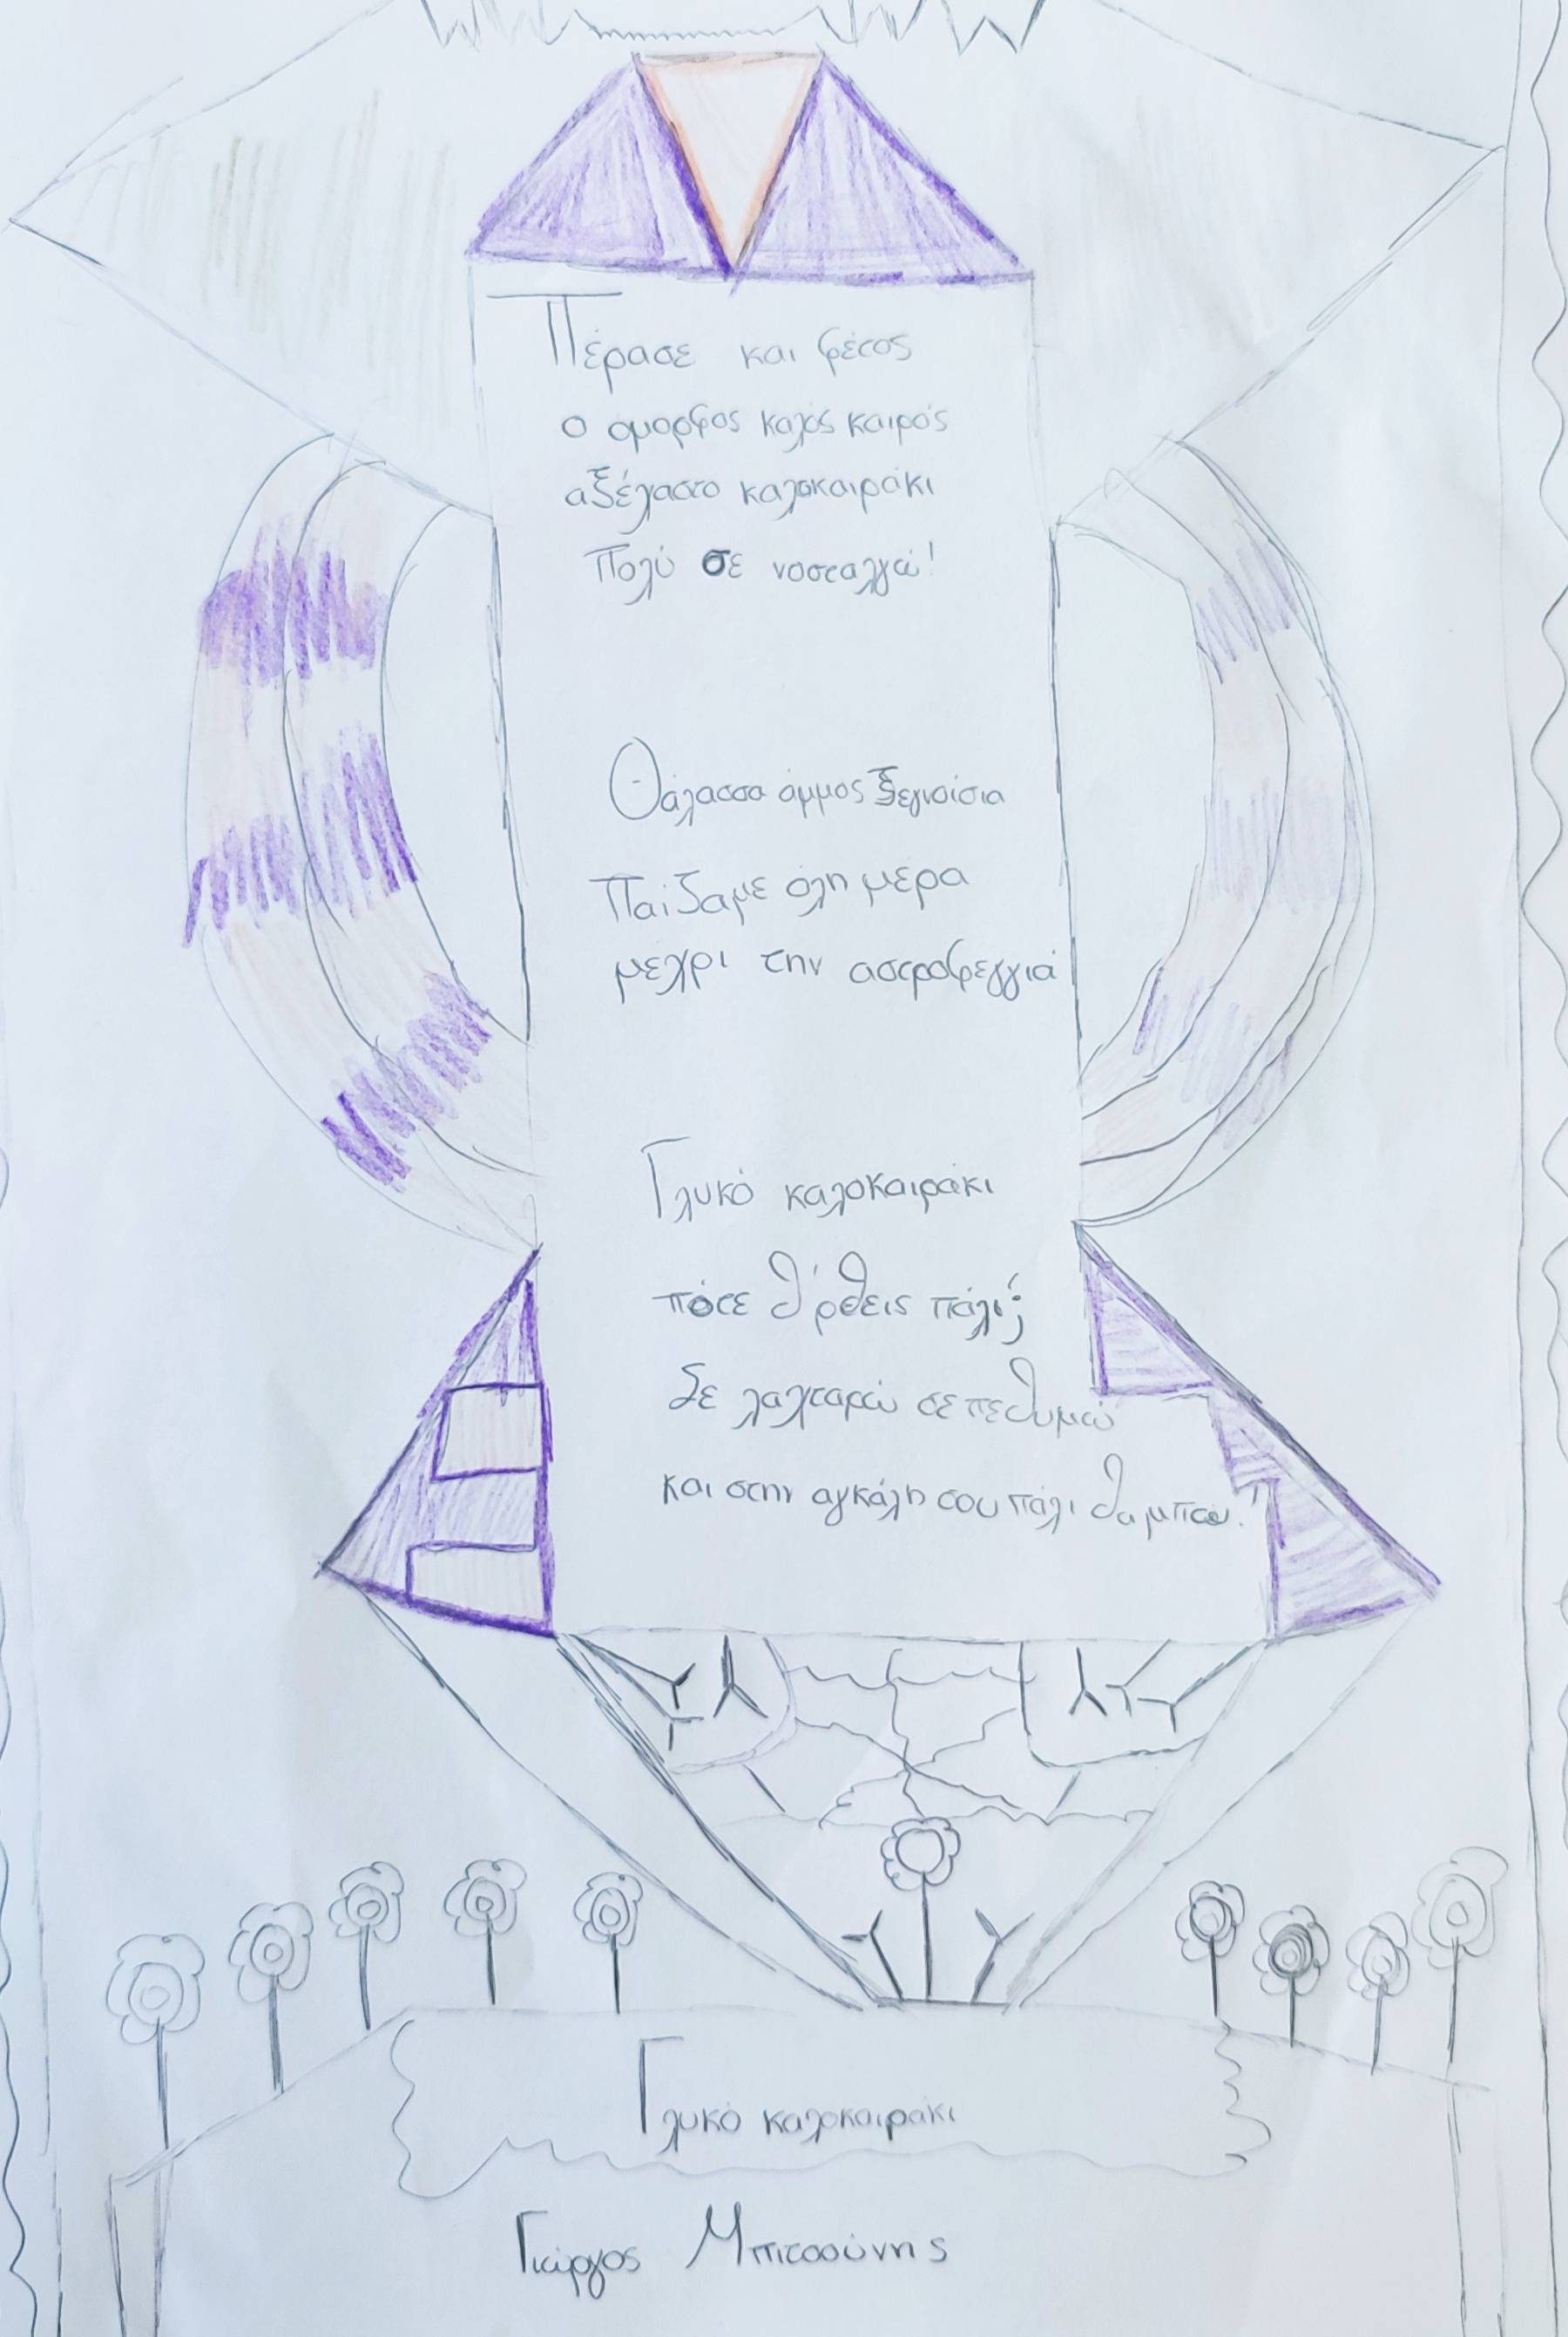 Πέρασε και φέτος
ο όμορφος καλός καιρός
αξέχαστο καλοκαιράκι
Πολύ σε νοσταλγώ!
Θάλασσα άμμος ξεγνοισια
Παίζαμε όλη μέρα
μέχρι την αστροφεγγιά
Γλυκό καλοκαιράκι
πότε θ'ρθεις πάλι;
Σε λαχταρώ σε πεθυμώ
και στην αγκάλη σου πάλι θα μπω!
Γλυκό καλοκαιράκι
Γιώργος Μπιτσούνης